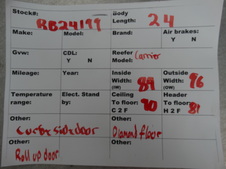 Stock#: RB24199 Body Length: 24
Make: Model: Brand: Air brakes: Y N
Gvw: CDL: Y N Reefer Model: Carrier
Mileage: Year: Inside Width: (IW) 89 Outside Width: (OW) 96
Temperature range: Elect. Stand by: Ceiling To floor: C 2 F 90 Header To floor: H 2 F 81
Other: Curbsidedoor Other: Diamond floor
Other: Roll up door Other: